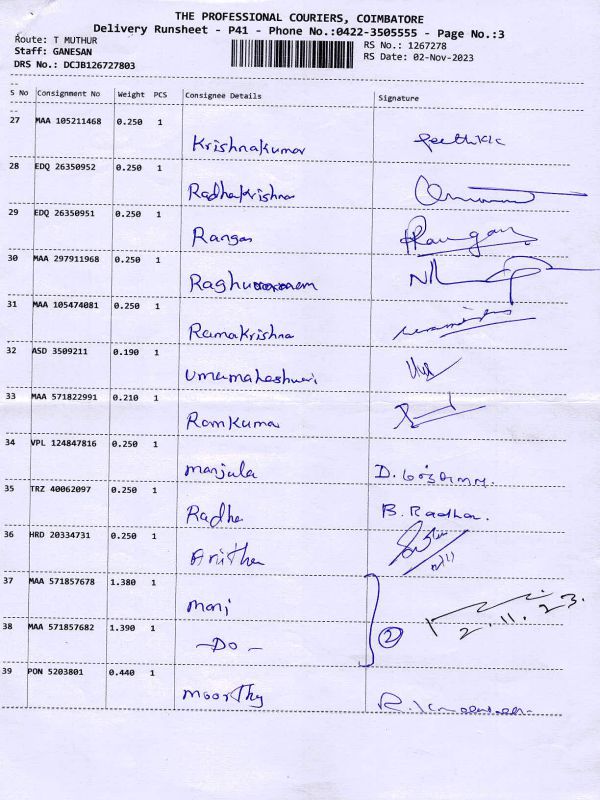 THE PROFESSIONAL COURIERS, COIMBATORE
Delivery Runsheet - P41 - Phone No.:0422-3505555 - Page No.:3
Route: T MUTHUR
RS No.: 1267278
Staff: GANESAN
RS Date: 02-Nov-2023
DRS No.: DCJB126727803
S No Consignment No Weight PCS Consignee Details Signature
27 MAA 105211468 0.250 1
Krishnakumar
28 EDQ 26350952 0.250 1
Radhakrishna
29 EDQ 26350951 0.250 1
Rangas Rangan
30 MAA 297911968 0.250 1
31 MAA 105474081 0.250 1
Ramakrishna
32 ASD 3509211 0.190 1
Umamaheshwari
33 MAA 571822991 0.210 1
Ramkumar
34 VPL 124847816 0.250 1
Manjula D.
35 TRZ 40062097 0.250 1
Radha B. Radha.
36 HRD 20334731 0.250 1
Anitha
37 MAA 571857678 1.380 1
Mani 2.11.23.
38 MAA 571857682 1.390 1
- Do - 2
39 PON 5203801 0.440 1
Moorthy R.